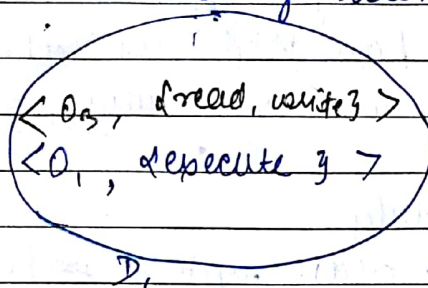 < O₃, {read, write} >
< O₁, {execute } >
D₁